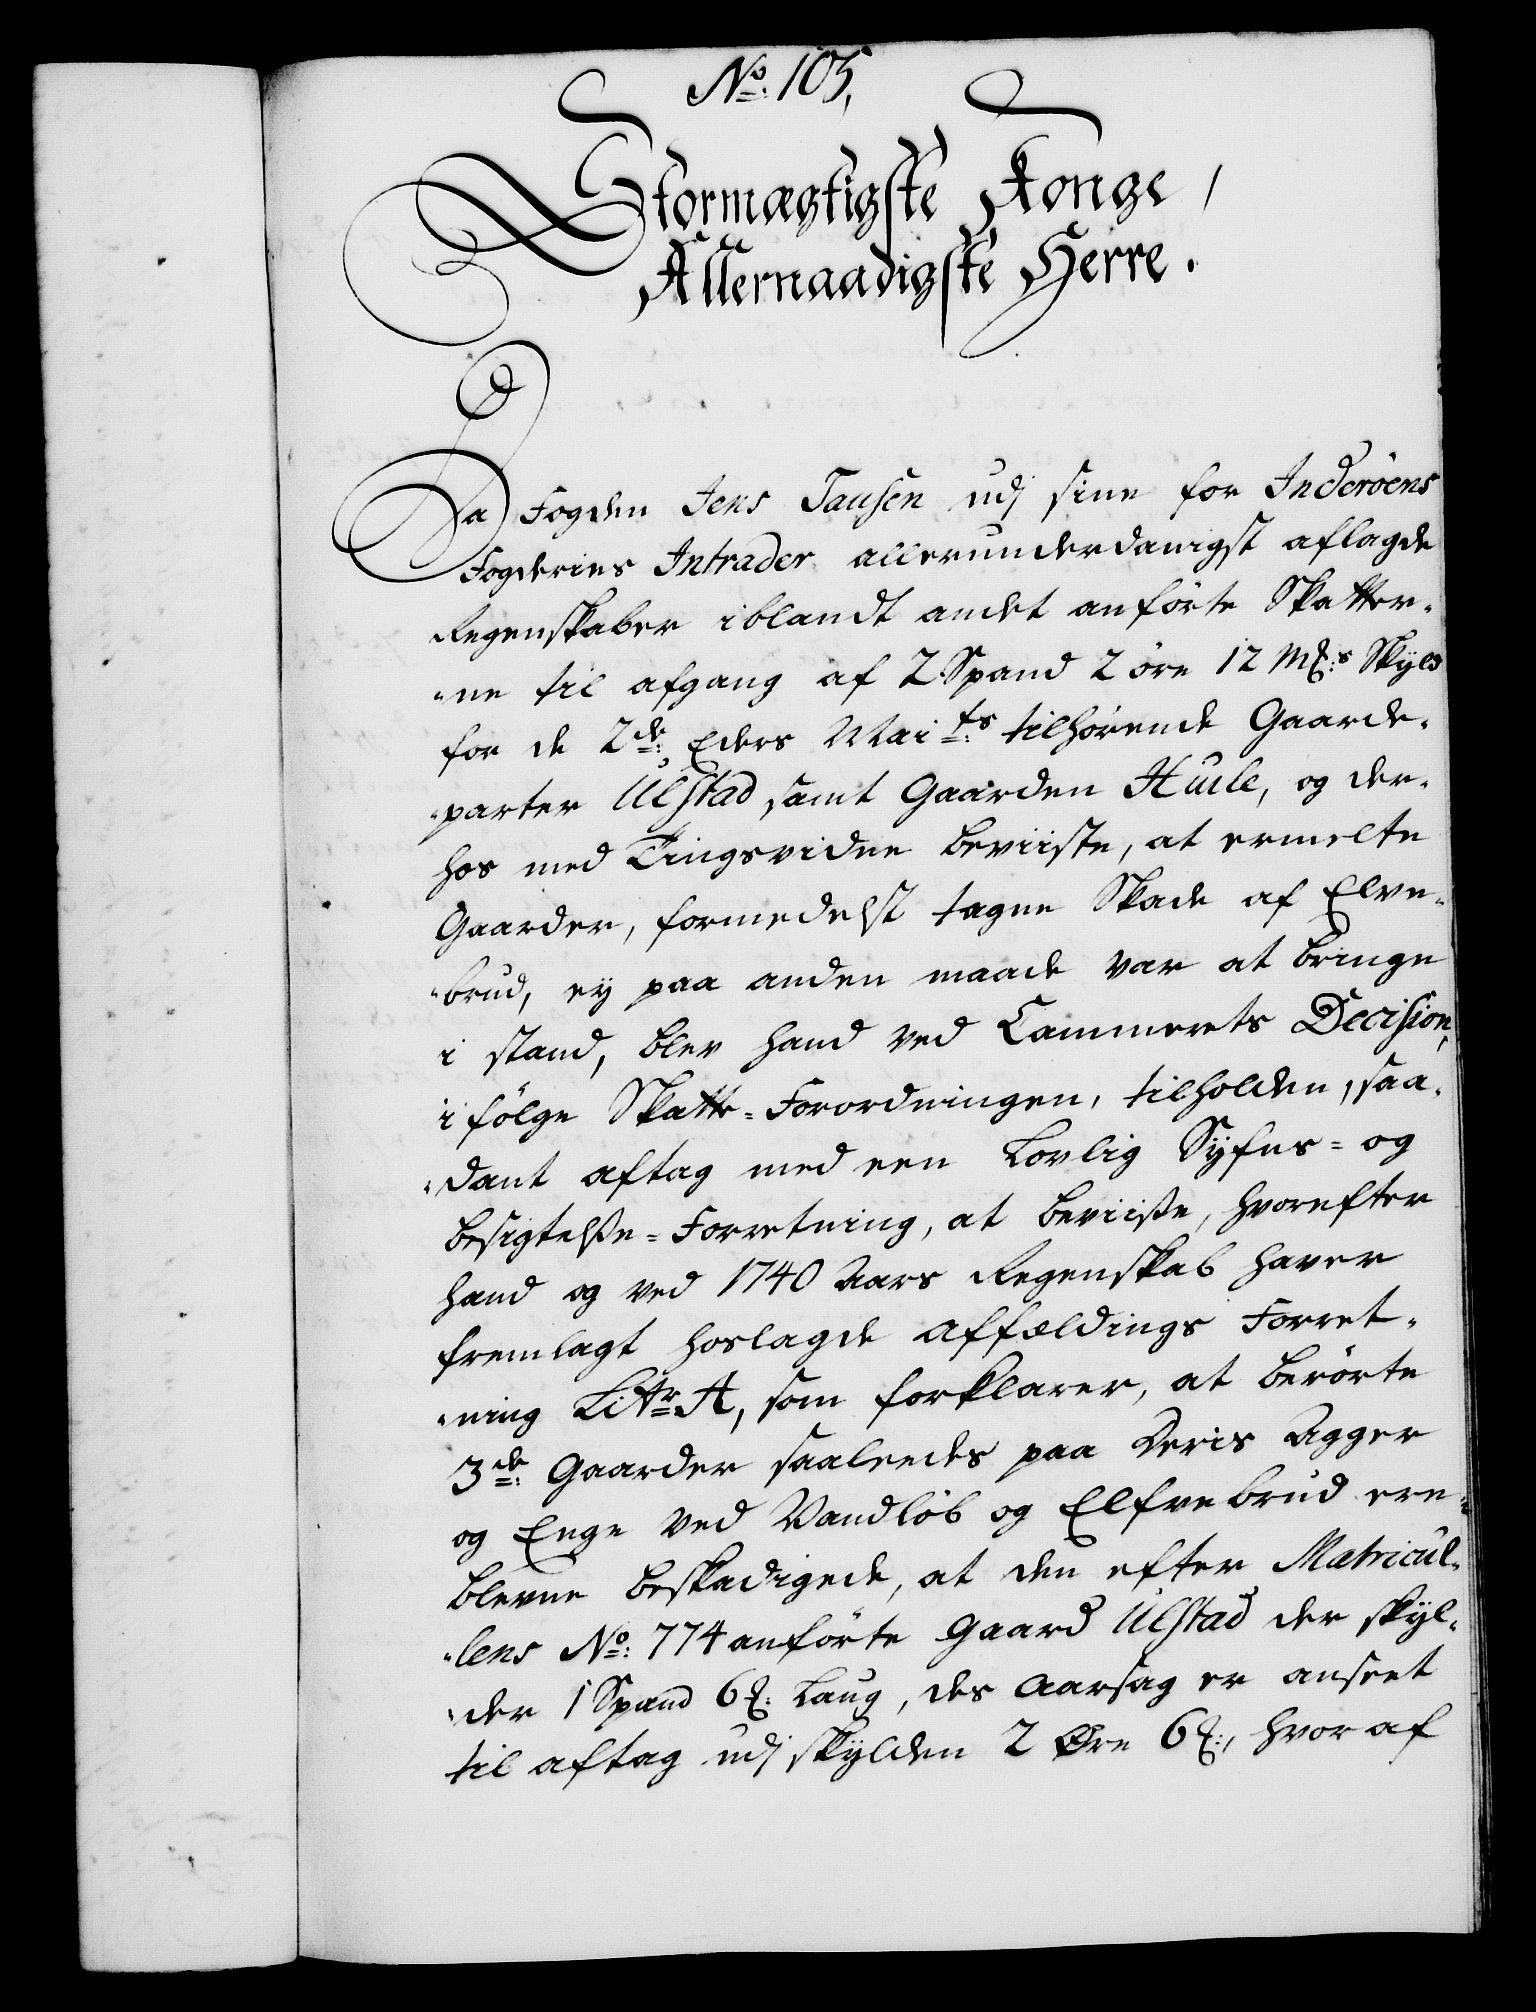 No: 105,
Stormægtigste Konge,
Allernaadigste Herre.
Da Fogden Jens Tausen udj sine for Inderöens
Fogderies Intrader allerunderdanigst aflagde
Regenskaber iblandt andet anförte Skatter-
ne til afgang af 2 Spand 2 öre 12 m&:s Skyld
for de 2de: Eders Maits: tilhörende Gaarde-
parter Ulstad samt Gaarden Huile, og der-
hos med Tingsvidne beviiste, at ermelte
Gaarder, formedelst tagne Skade af Elve-
brud, ey paa anden maade var at bringe
i stand, blev hand ved Cammerets Decision,
i fölge Skatte-Forordningen, tilholden, saa-
dant aftag med een Lovlig Syfns- og
besigtelsse-Forretning, at beviisse, hvorefter
hand og ved 1740 Aars Regenskab haver
fremlagt hoslagde Affældings Forret-
ning Littr: A, som forklarer, at berörte
3de: Gaarder saaleedes paa Deris Agger
og Enge ved Vandlöb og Elfvebrud ere
blevne beskadigede, at den efter Matricul-
lens No: 774 anförte Gaard Ulstad der skyl-
der 1 Spand 6 &: Laug, des Aarsag er anseet
til aftag udj skylden 2 Øre 6 &:, hvoraf